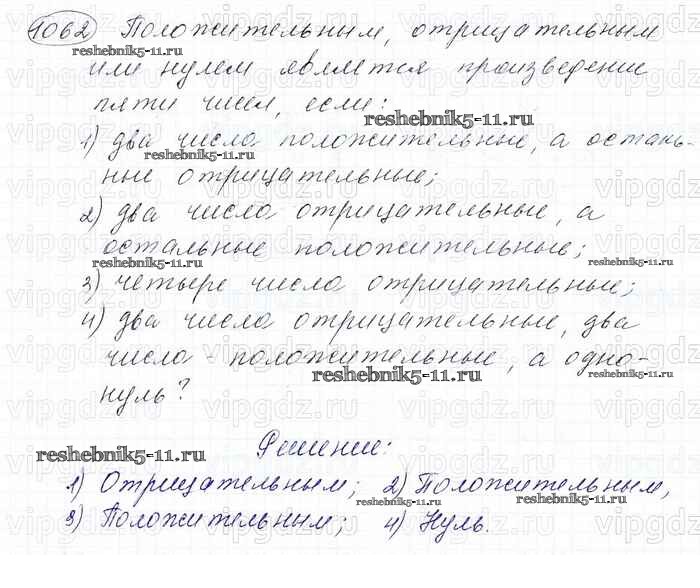 1062 Положительным, отрицательным
или нулем является произведение
пяти чисел, если:
1) два числа положительные, а осталь-
ные отрицательные;
2) два числа отрицательные, а
остальные положительные;
3) четыре числа отрицательные;
4) два числа отрицательные, два
числа - положительные, а одно-
нуль?
Решение:
1) Отрицательным; 2) Положительным,
3) Положительным; 4) Нуль.
reshebnik5-11.ru
reshebnik5-11.ru
reshebnik5-11.ru
reshebnik5-11.ru
reshebnik5-11.ru
reshebnik5-11.ru
reshebnik5-11.ru
reshebnik5-11.ru
reshebnik5-11.ru
reshebnik5-11.ru
vipgdz.ru